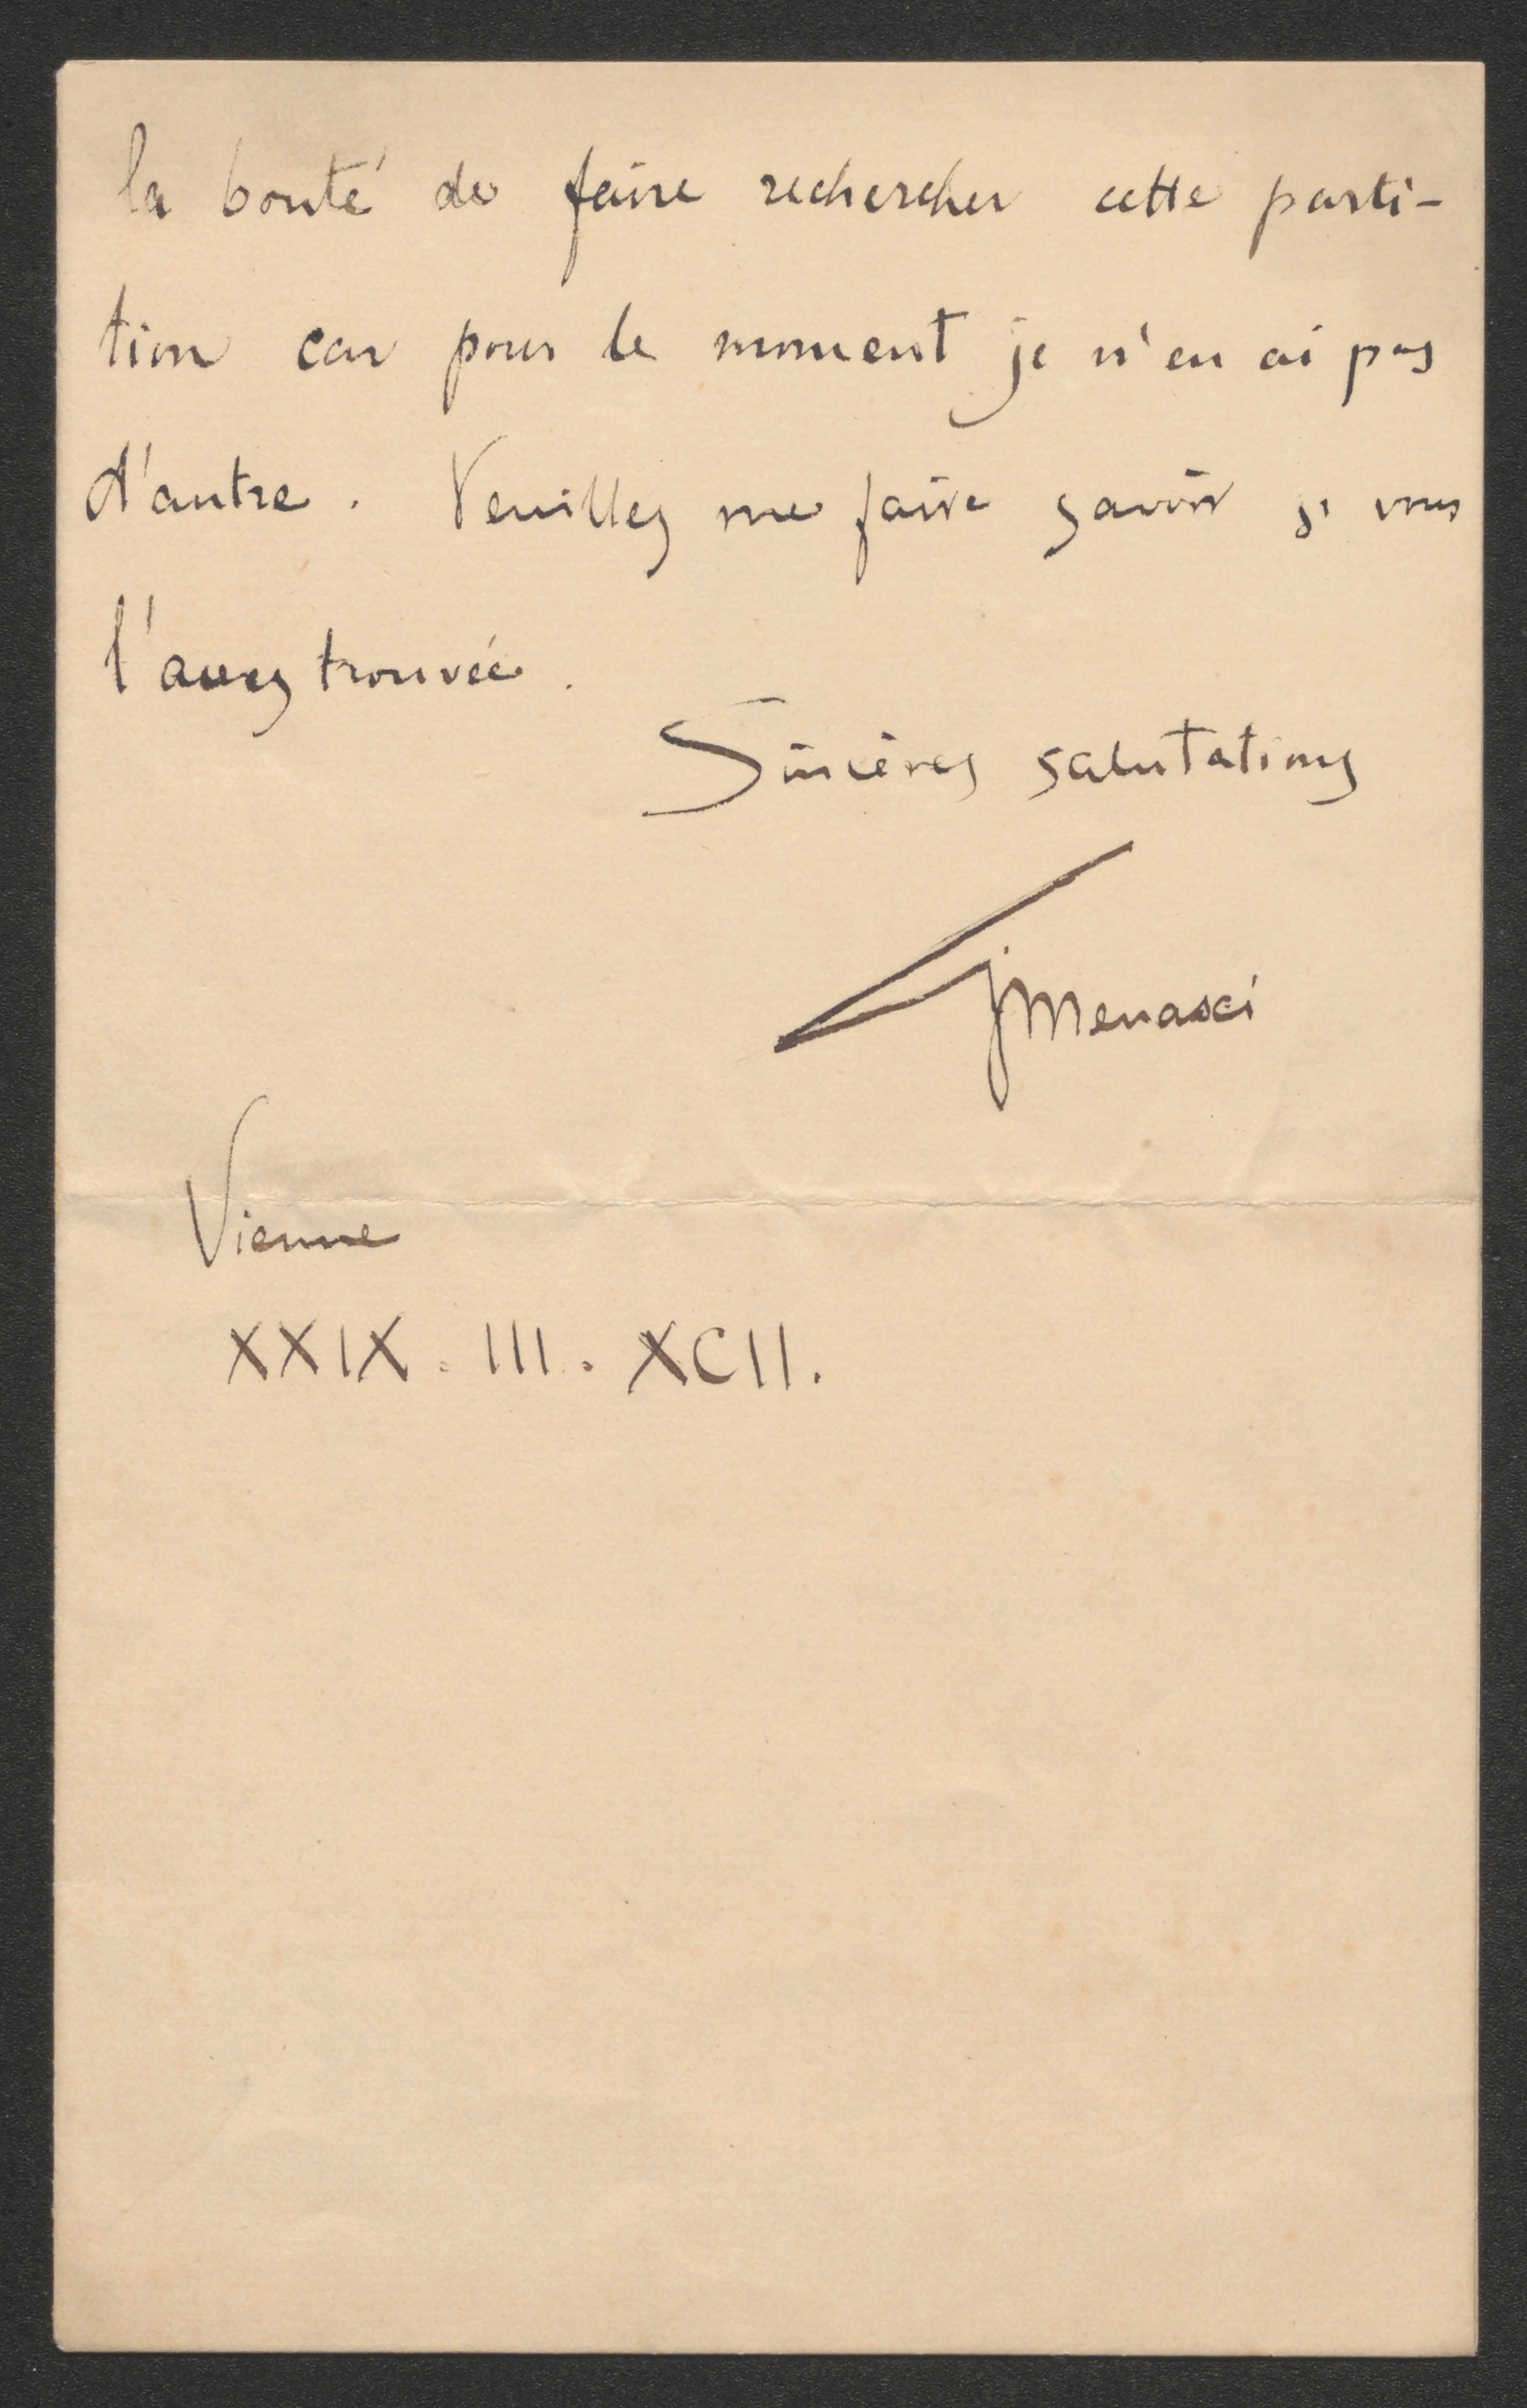 la bonté de faire rechercher cette parti-
tion car pour le moment je n'en ai pas
d'autre. Veuillez me faire savoir si vous
l'avez trouvée.
Sincères salutations
GMenasci
Vienne
XXIX. III. XCII.